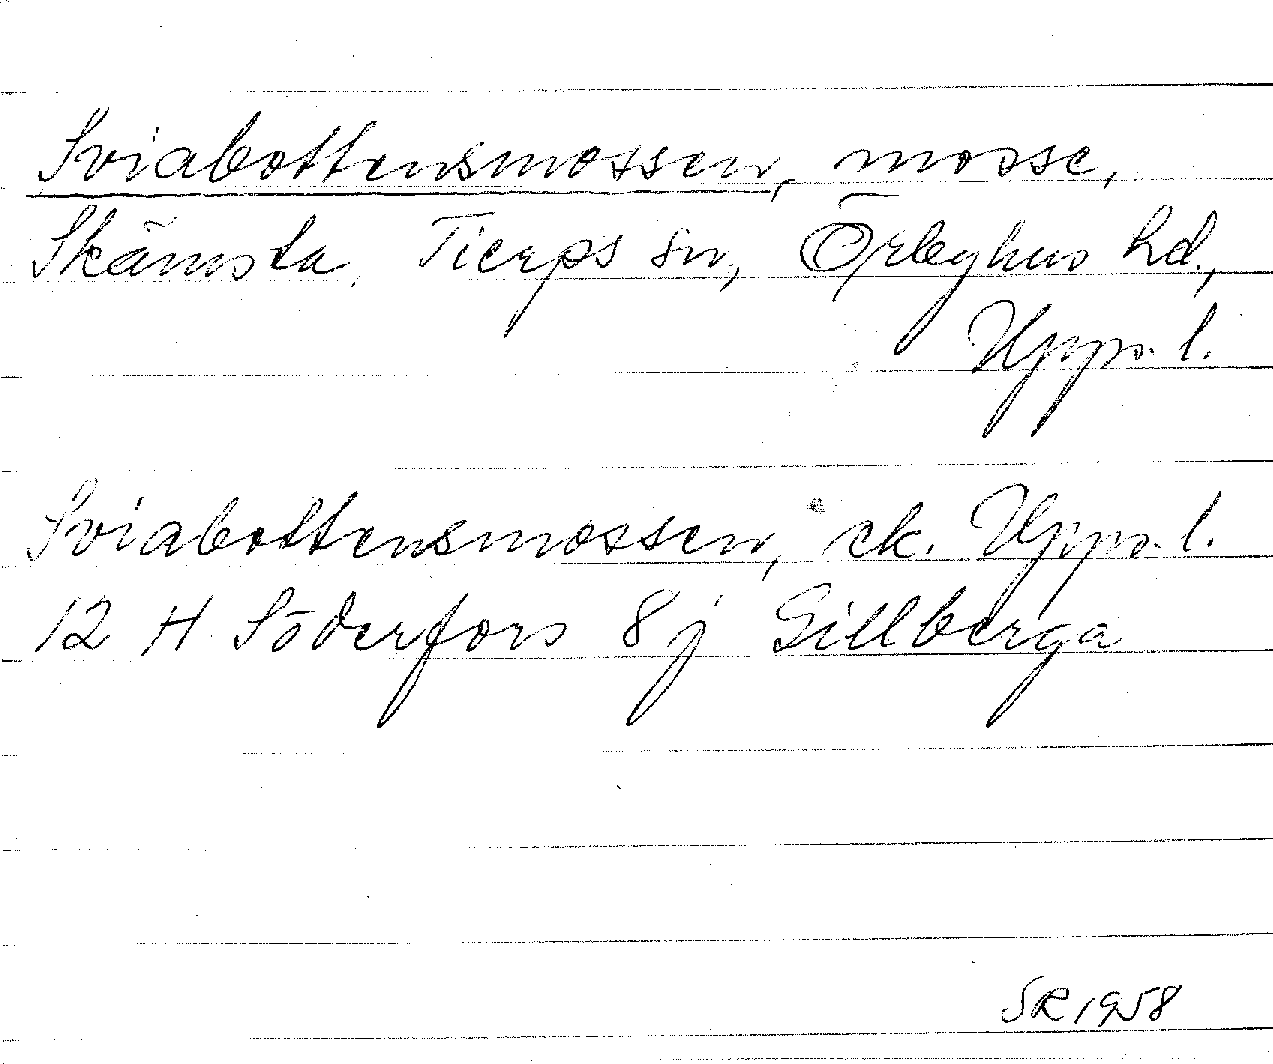 Sviabottensmossen, mosse,
Skämsta, Tierps sn, Örbyhus hd.,
Upps. l.
Sviabottensmossen, ek. Upps. l.
12 H Söderfors 8 j Gillberga
SR 1958